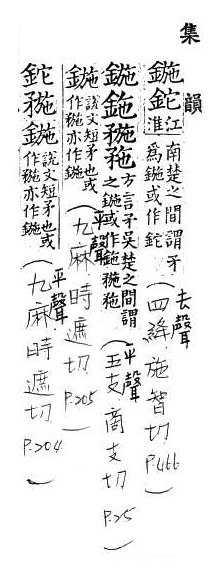 集韻
鍦鉈江淮南楚之間謂矛為鍦或作鉈(去聲四絳施智切P.466)
鍦鉇䂠㐌方言矛吳楚之間謂之鍦或作(平聲五支商支切P.25)
鍦說文短矛也或作(平聲九麻時遮切P.205)
鉈鍦說文短矛也或作亦作鍦(平聲九麻時遮切P.204)